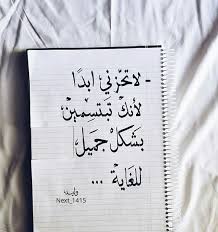 - لا تحزني ابدًا
لأنكِ تبتسمينَ
بشكلٍ جَميل
للغاية ...
وليد
Next_1415